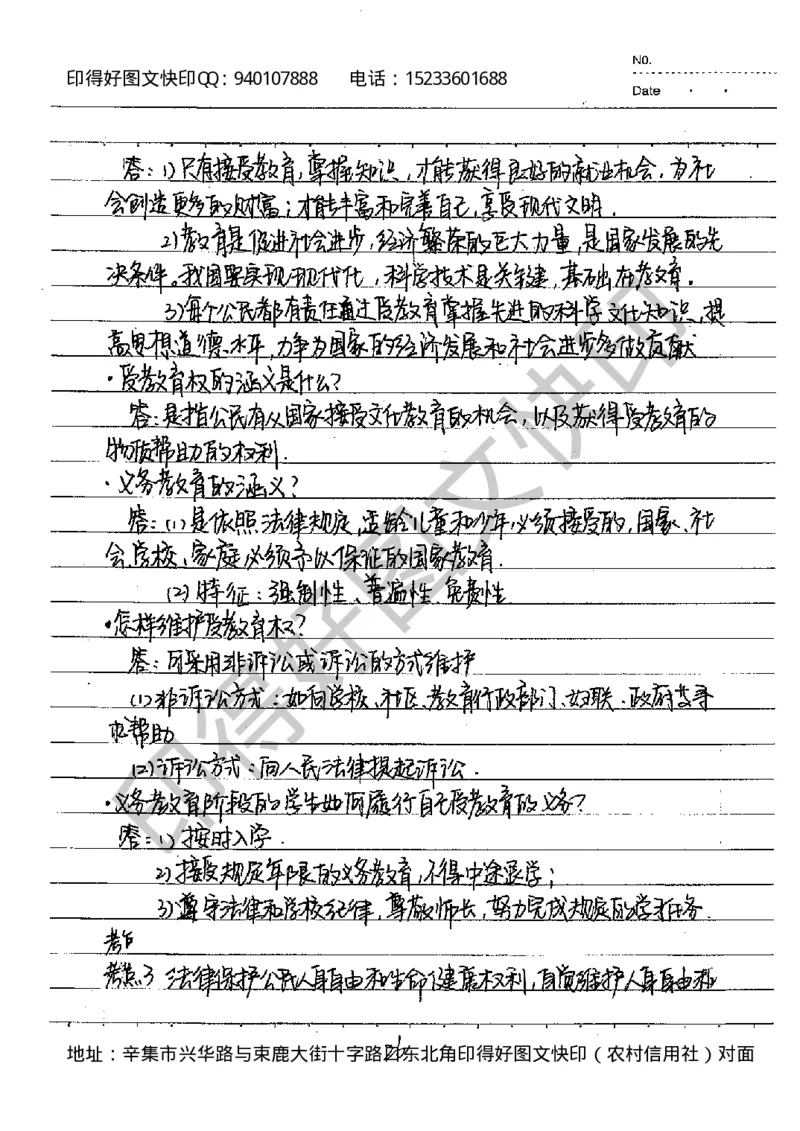 No.
印得好图文快印QQ：940107888 电话：15233601688
Date
答：1)只有接受教育，掌握知识，才能获得良好的就业机会，为社
会创造更多的财富；才能丰富和完善自己，享受现代文明．
2)教育是促进社会进步，经济繁荣的巨大力量，是国家发展的先
决条件。我国要实现现代化，科学技术是关键，基础在教育．
3)每个公民都有责任通过受教育掌握先进的科学文化知识，提
高思想道德水平，力争为国家的经济发展和社会进步多做贡献
·受教育权的涵义是什么？
答：是指公民有从国家接受文化教育的机会，以及获得受教育的
物质帮助的权利．
·义务教育的涵义？
答：(1)是依照法律规定，适龄儿童和少年必须接受的，国家、社
会、学校、家庭必须予以保证的国家教育．
(2)特征：强制性、普遍性、免费性
·怎样维护受教育权？
答：可采用非诉讼或诉讼的方式维护
(1)非诉讼方式：如向学校、社区、教育行政部门、妇联、政府等寻
求帮助
(2)诉讼方式：向人民法律提起诉讼．
·义务教育阶段的学生如何履行自己受教育的义务？
答：1)按时入学．
2)接受规定年限的义务教育，不得中途退学；
3)遵守法律和学校纪律，尊敬师长，努力完成规定的学习任务．
考点3 法律保护公民人身自由和生命健康权利，自觉维护人身自由和
地址：辛集市兴华路与束鹿大街十字路口东北角印得好图文快印（农村信用社）对面
印得好图文快印